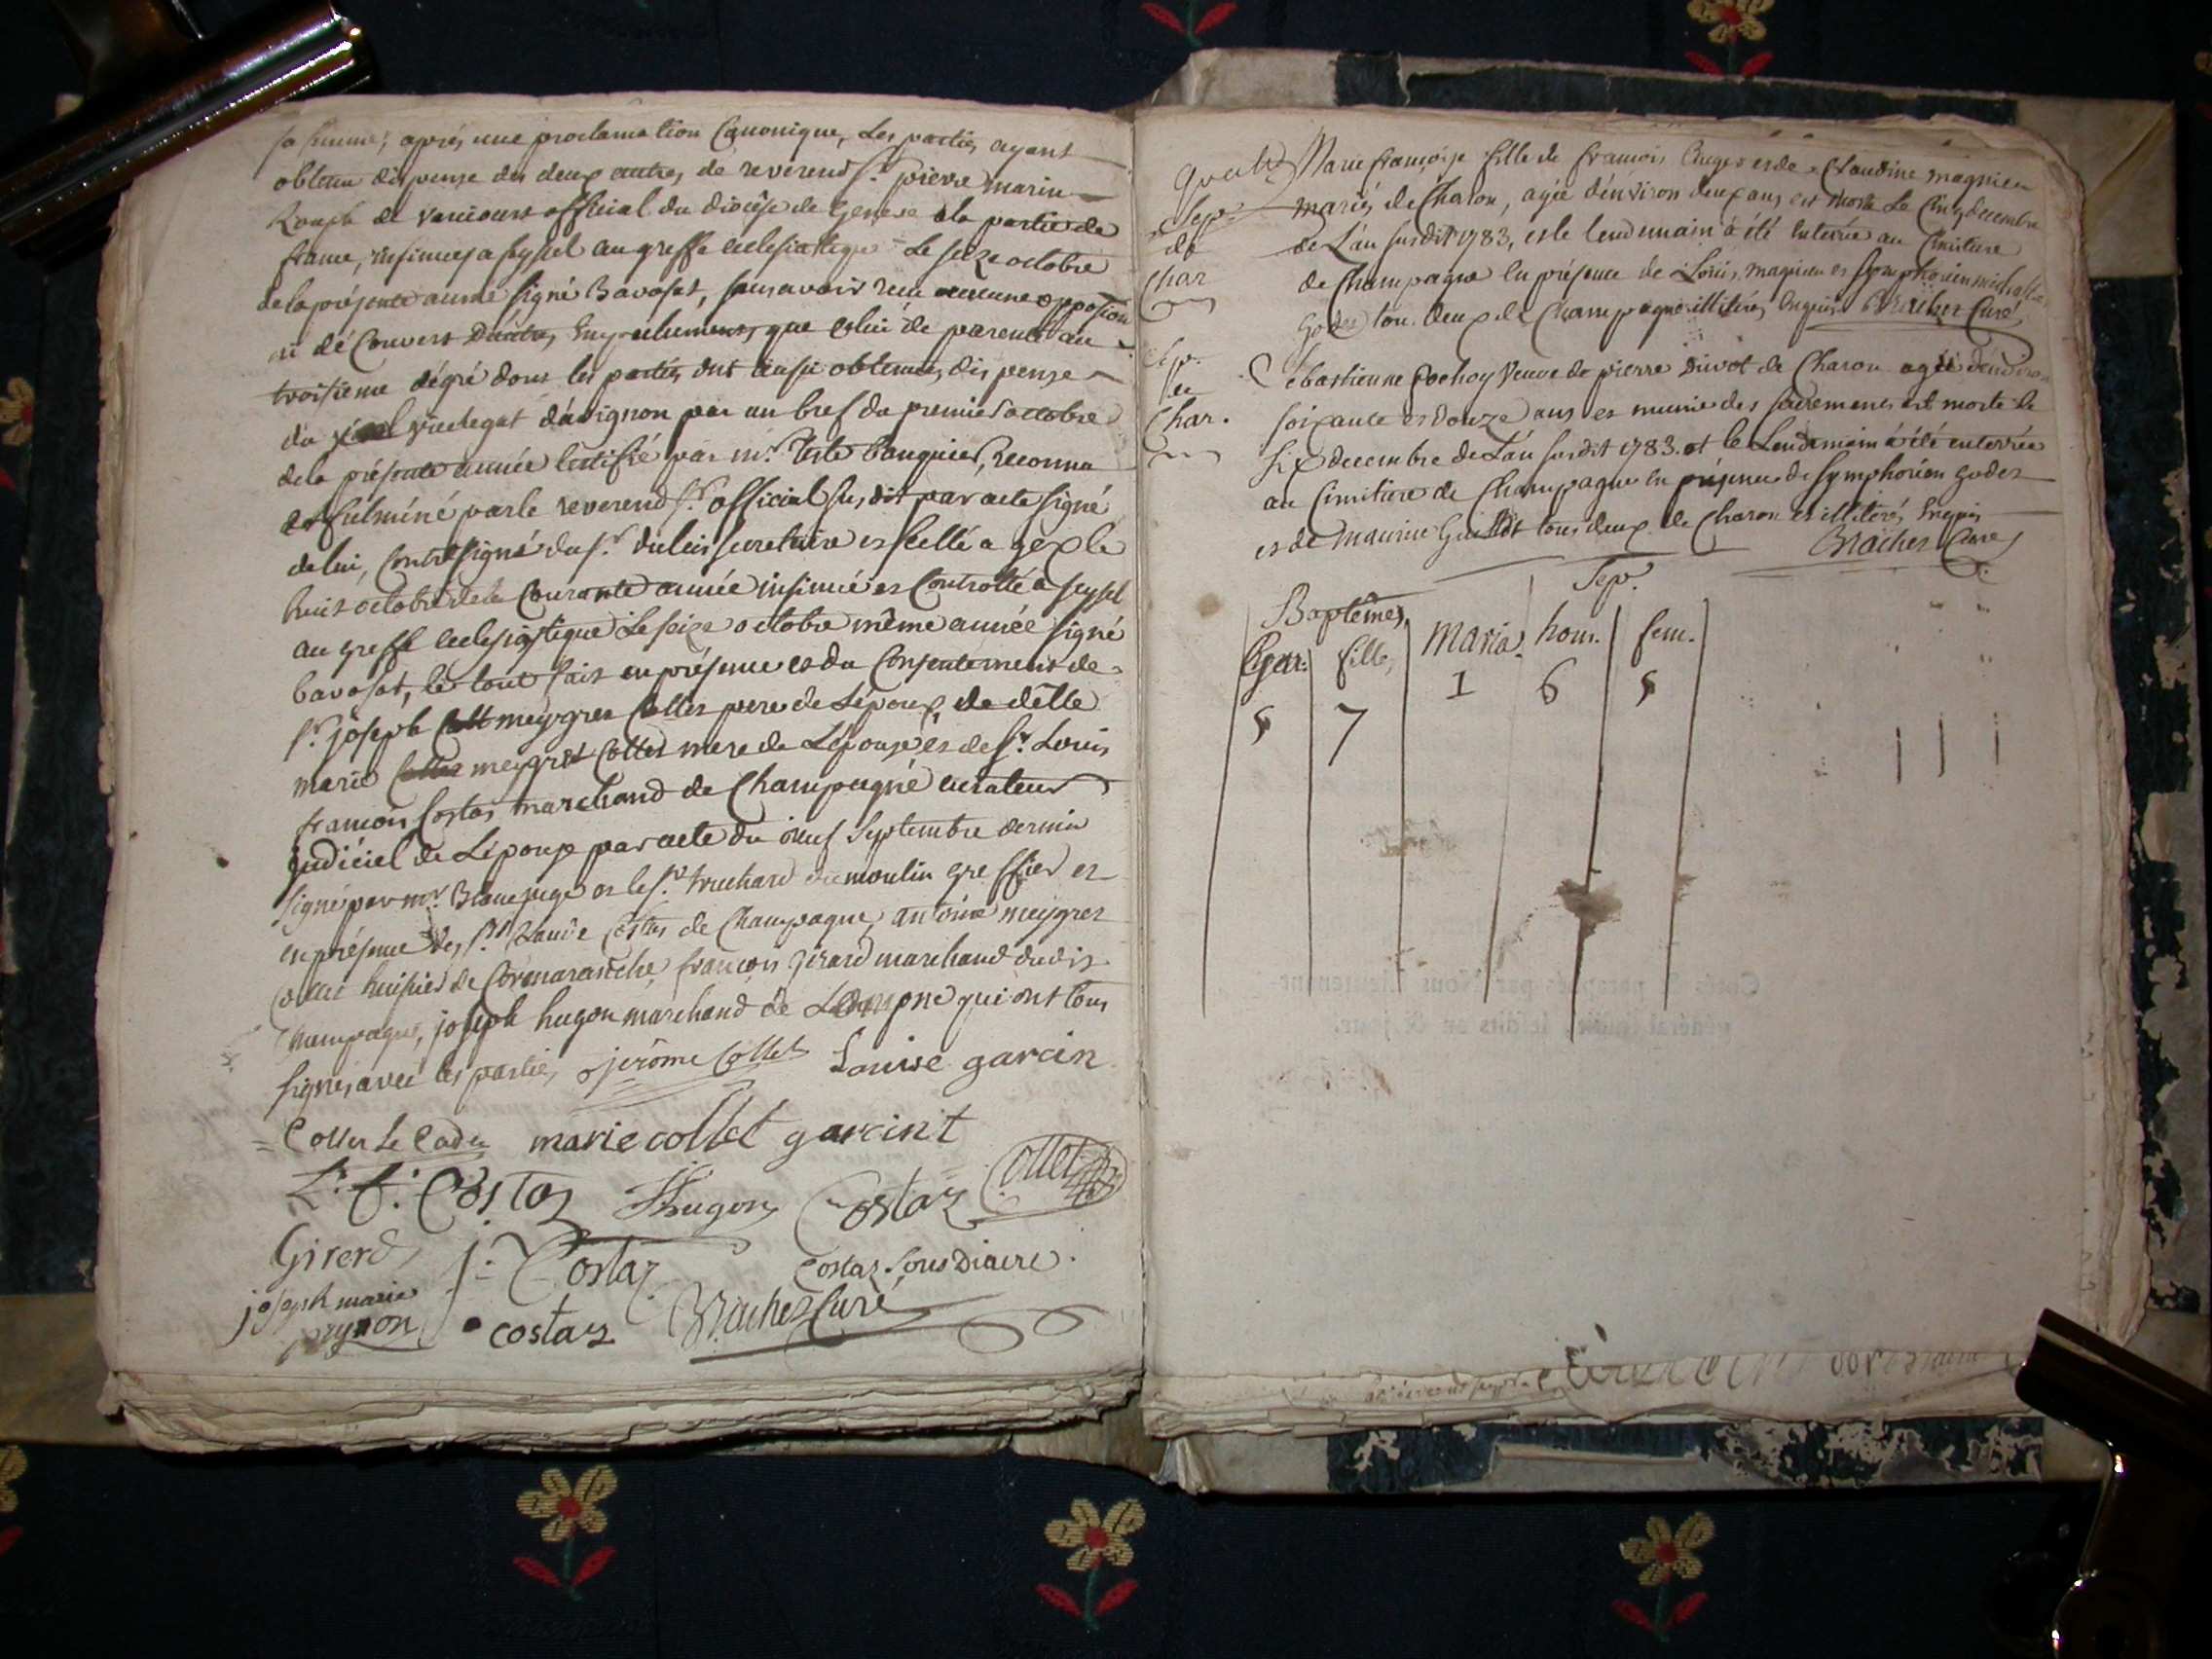 sa femme; après une proclamation Canonique, Les parties ayant
obtenu dispense des deux autres de reverend Sr. pierre marin
de varicourt official du diocèse de Geneve a la partie de
france, insinuée a seyssel au greffe eclesiastique Le seize octobre
de la présente année signé Bavosat, sans avoir recu aucune opposition
ni découvert d'autres Empechements que celui de parenté au
troisieme dégré dont les parties ont aussi obtenues dispense
du vicelegat d'avignon par un bref du premier octobre
de la présente année certifié par mr. banquier, reconnu
et fulminé par le reverend Sr. official susdit par acte signé
de lui, Contresigné du Sr. secretaire et scellé a gex le
huit octobre de la Courante année insinué et Controllé a seyssel
au greffe eclesiastique Le seize octobre même année signé
bavosat, le tout fait en présence et du Consentement de
Sr. joseph meygret Collet pere de Lépoux, de délle
marie meygret Collet mere de Lépouse et de Sr. Louis
francois Costaz marchand de Champagne curateur
judiciel de Lépoux par acte du neuf Septembre dernier
signé par mr. juge et le Sr. truchard dumoulin greffier et
en présence des Srs. Costaz de Champagne, antoine meygret
Collet huissier de Cormaranche, francois girard marchand dudit
Champagne, joseph hugon marchand de qui ont tous
signés avec les parties jerôme Collet Louise garcin
Collet Le Cadet marie collet garcint
L. f. Costaz Hugon Costaz Collet
Girerd j. Costaz Costaz Sous Diacre
joseph marie costaz Brachet Curé
peyron
quatre Marie françoise fille de francois et de Claudine magnien
Sep. mariés de Charon, agée d'environ deux ans est morte Le Cinq decembre
de de L'an susdit 1783, et le lendemain a été Enterrée au Cimitiere
Char de Champagne en présence de Louis magnien et Symphorien
Godet tou. deux de Champagne illiterés Enquis Brachet Curé
Sep. Sebastienne veuve de pierre de Charon agée d'environ
de soixante et douze ans et munie des sacremens est morte le
Char. six decembre de L'an susdit 1783. et le Lendemain a été enterrée
au Cimitiere de Champagne en présence de Symphorien godet
et de maurice tous deux de Charon et illiterés Enquis
Brachet Curé
Sep.
Baptêmes
Gar. fille, Maria. hom. fem.
5 7 1 6 5